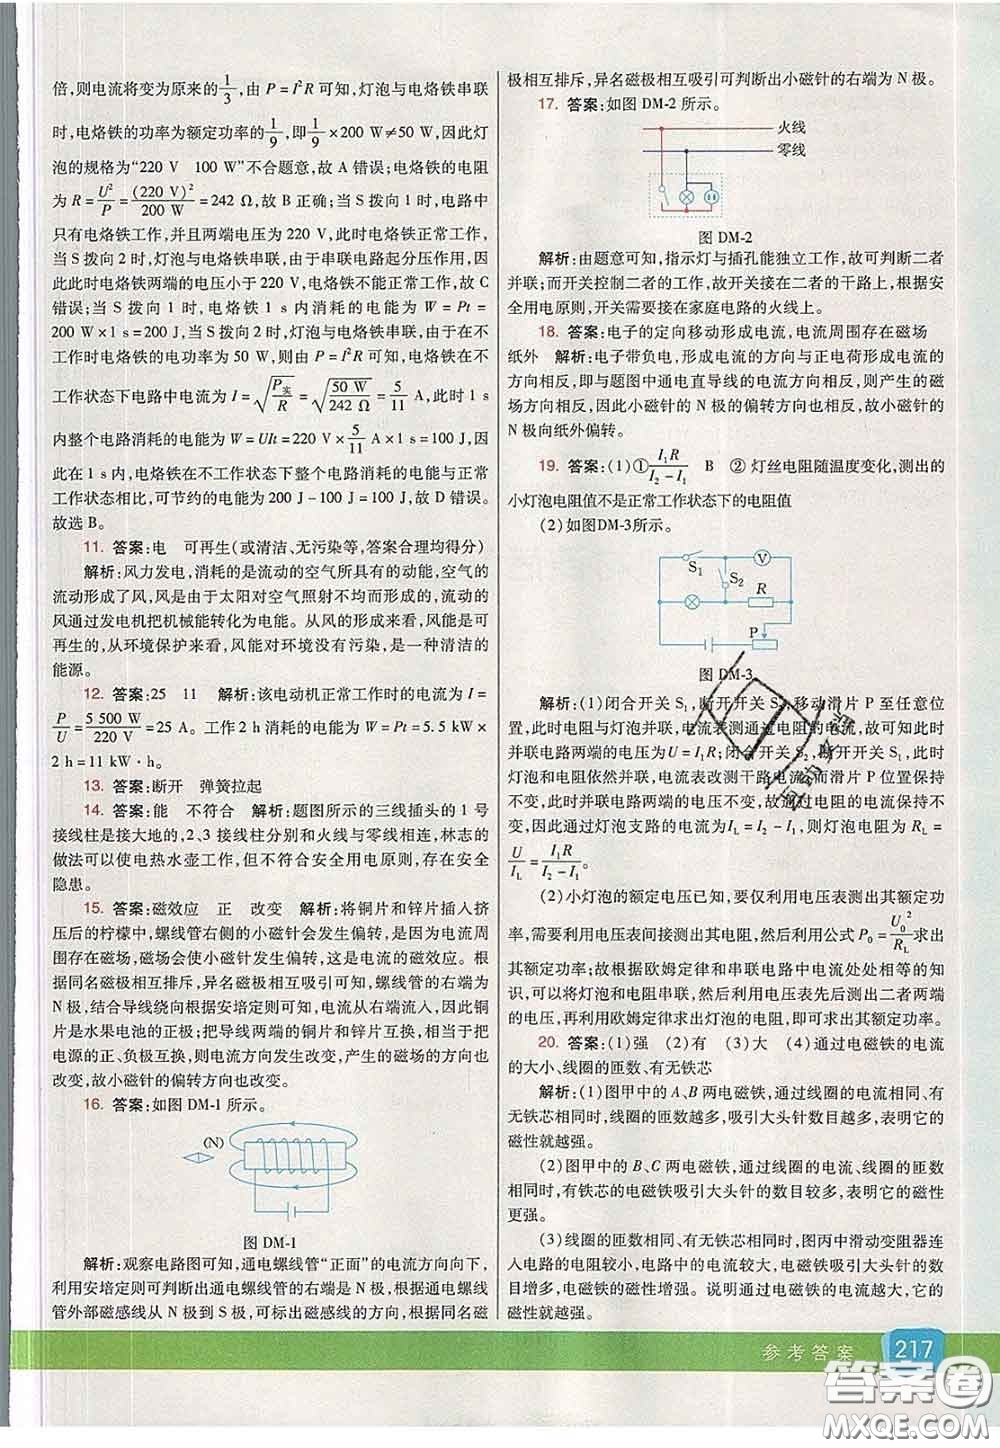 倍,则电流将变为原来的1/3,由 P=I²R 可知,灯泡与电烙铁串联
时,电烙铁的功率为额定功率的1/9,即1/9×200 W≠50 W,因此灯
泡的规格为“220 V 100 W”不合题意,故 A 错误;电烙铁的电阻
为 R=U²/P=(220 V)²/200 W=242 Ω,故 B 正确;当 S 拨向 1 时,电路中
只有电烙铁工作,并且两端电压为 220 V,此时电烙铁正常工作,
当 S 拨向 2 时,灯泡与电烙铁串联,由于串联电路起分压作用,因
此此时电烙铁两端的电压小于 220 V,电烙铁不能正常工作,故 C
错误;当 S 拨向 1 时,电烙铁 1 s 内消耗的电能为 W=Pt=
200 W×1 s=200 J,当 S 拨向 2 时,灯泡与电烙铁串联,由于在不
工作时电烙铁的电功率为 50 W,则由 P=I²R 可知,电烙铁在不
工作状态下电路中电流为 I=√(P实/R)=√(50 W/242 Ω)=5/11 A,此时 1 s
内整个电路消耗的电能为 W=UIt=220 V×5/11 A×1 s=100 J,因
此在 1 s 内,电烙铁在不工作状态下整个电路消耗的电能与正常
工作状态相比,可节约的电能为 200 J-100 J=100 J,故 D 错误。
故选 B。
11. 答案:电 可再生(或清洁、无污染等,答案合理均得分)
解析:风力发电,消耗的是流动的空气所具有的动能,空气的
流动形成了风,风是由于太阳对空气照射不均而形成的,流动的
风通过发电机把机械能转化为电能。从风的形成来看,风能是可
再生的,从环境保护来看,风能对环境没有污染,是一种清洁的
能源。
12. 答案:25 11 解析:该电动机正常工作时的电流为 I=
P/U=5 500 W/220 V=25 A。工作 2 h 消耗的电能为 W=Pt=5.5 kW×
2 h=11 kW·h。
13. 答案:断开 弹簧拉起
14. 答案:能 不符合 解析:题图所示的三线插头的 1 号
接线柱是接大地的,2、3 接线柱分别和火线与零线相连,林志的
做法可以使电热水壶工作,但不符合安全用电原则,存在安全
隐患。
15. 答案:磁效应 正 改变 解析:将铜片和锌片插入挤
压后的柠檬中,螺线管右侧的小磁针会发生偏转,是因为电流周
围存在磁场,磁场会使小磁针发生偏转,这是电流的磁效应。根
据同名磁极相互排斥,异名磁极相互吸引可知,螺线管的右端为
N 极,结合导线绕向根据安培定则可知,电流从右端流入,因此铜
片是水果电池的正极;把导线两端的铜片和锌片互换,相当于把
电源的正、负极互换,则电流方向发生改变,产生的磁场方向也
改变,故小磁针的偏转方向也改变。
16. 答案:如图 DM-1 所示。
(N)
图 DM-1
解析:观察电路图可知,通电螺线管“正面”的电流方向向下,
利用安培定则可判断出通电螺线管的右端是 N 极,根据通电螺线
管外部磁感线从 N 极到 S 极,可标出磁感线的方向,根据同名磁
极相互排斥,异名磁极相互吸引可判断出小磁针的右端为 N 极。
17. 答案:如图 DM-2 所示。
火线
零线
图 DM-2
解析:由题意可知,指示灯与插孔能独立工作,故可判断二者
并联;而开关控制二者的工作,故开关接在二者的干路上,根据安
全用电原则,开关需要接在家庭电路的火线上。
18. 答案:电子的定向移动形成电流,电流周围存在磁场
纸外 解析:电子带负电,形成电流的方向与正电荷形成电流的
方向相反,即与题图中通电直导线的电流方向相反,则产生的磁
场方向相反,因此小磁针的 N 极的偏转方向也相反,故小磁针的
N 极向纸外偏转。
19. 答案:(1)①I₁R/(I₂-I₁) B ② 灯丝电阻随温度变化,测出的
小灯泡电阻值不是正常工作状态下的电阻值
(2)如图DM-3所示。
S₁
V
S₂
R
P
图 DM-3
解析:(1)闭合开关 S₁,断开开关 S₂,移动滑片 P 至任意位
置,此时电阻与灯泡并联,电流表测通过电阻的电流,故可知此时
并联电路两端的电压为 U=I₁R;闭合开关 S₂,断开开关 S₁,此时
电阻和灯泡依然并联,电流表改测干路电流,而滑片 P 位置保持
不变,因此并联电路两端的电压不变,故通过电阻的电流保持不
变。因此通过灯泡支路的电流为I_L=I₂-I₁,则灯泡电阻为 R_L=
U/I_L=I₁R/(I₂-I₁)。
(2)小灯泡的额定电压已知,要仅利用电压表测出其额定功
率,需要利用电压表间接测出其电阻,然后利用公式 P₀=U₀²/R_L求出
其额定功率;故根据欧姆定律和串联电路中电流处处相等的知
识,可以将灯泡和电阻串联,然后利用电压表先后测出二者两端
的电压,然后利用欧姆定律求出灯泡的电阻,即可求出其额定功率。
20. 答案:(1)强 (2)有 (3)大 (4)通过电磁铁的电流
的大小、线圈的匝数、有无铁芯
解析:(1)图甲中的 A、B 两电磁铁,通过线圈的电流相同、有
无铁芯相同时,线圈的匝数越多,吸引大头针数目越多,表明它的
磁性就越强。
(2)图甲中的 B、C 两电磁铁,通过线圈的电流、线圈的匝数
相同时,有铁芯的电磁铁吸引大头针的数目较多,表明它的磁性
更强。
(3)线圈的匝数相同、有无铁芯相同时,图丙中滑动变阻器连
入电路的电阻较小,电路中的电流较大,电磁铁吸引大头针的数
目增多,电磁铁的磁性增强。说明通过电磁铁的电流越大,它的
磁性就越强。
参考答案
217
答案圈
MXQE.COM